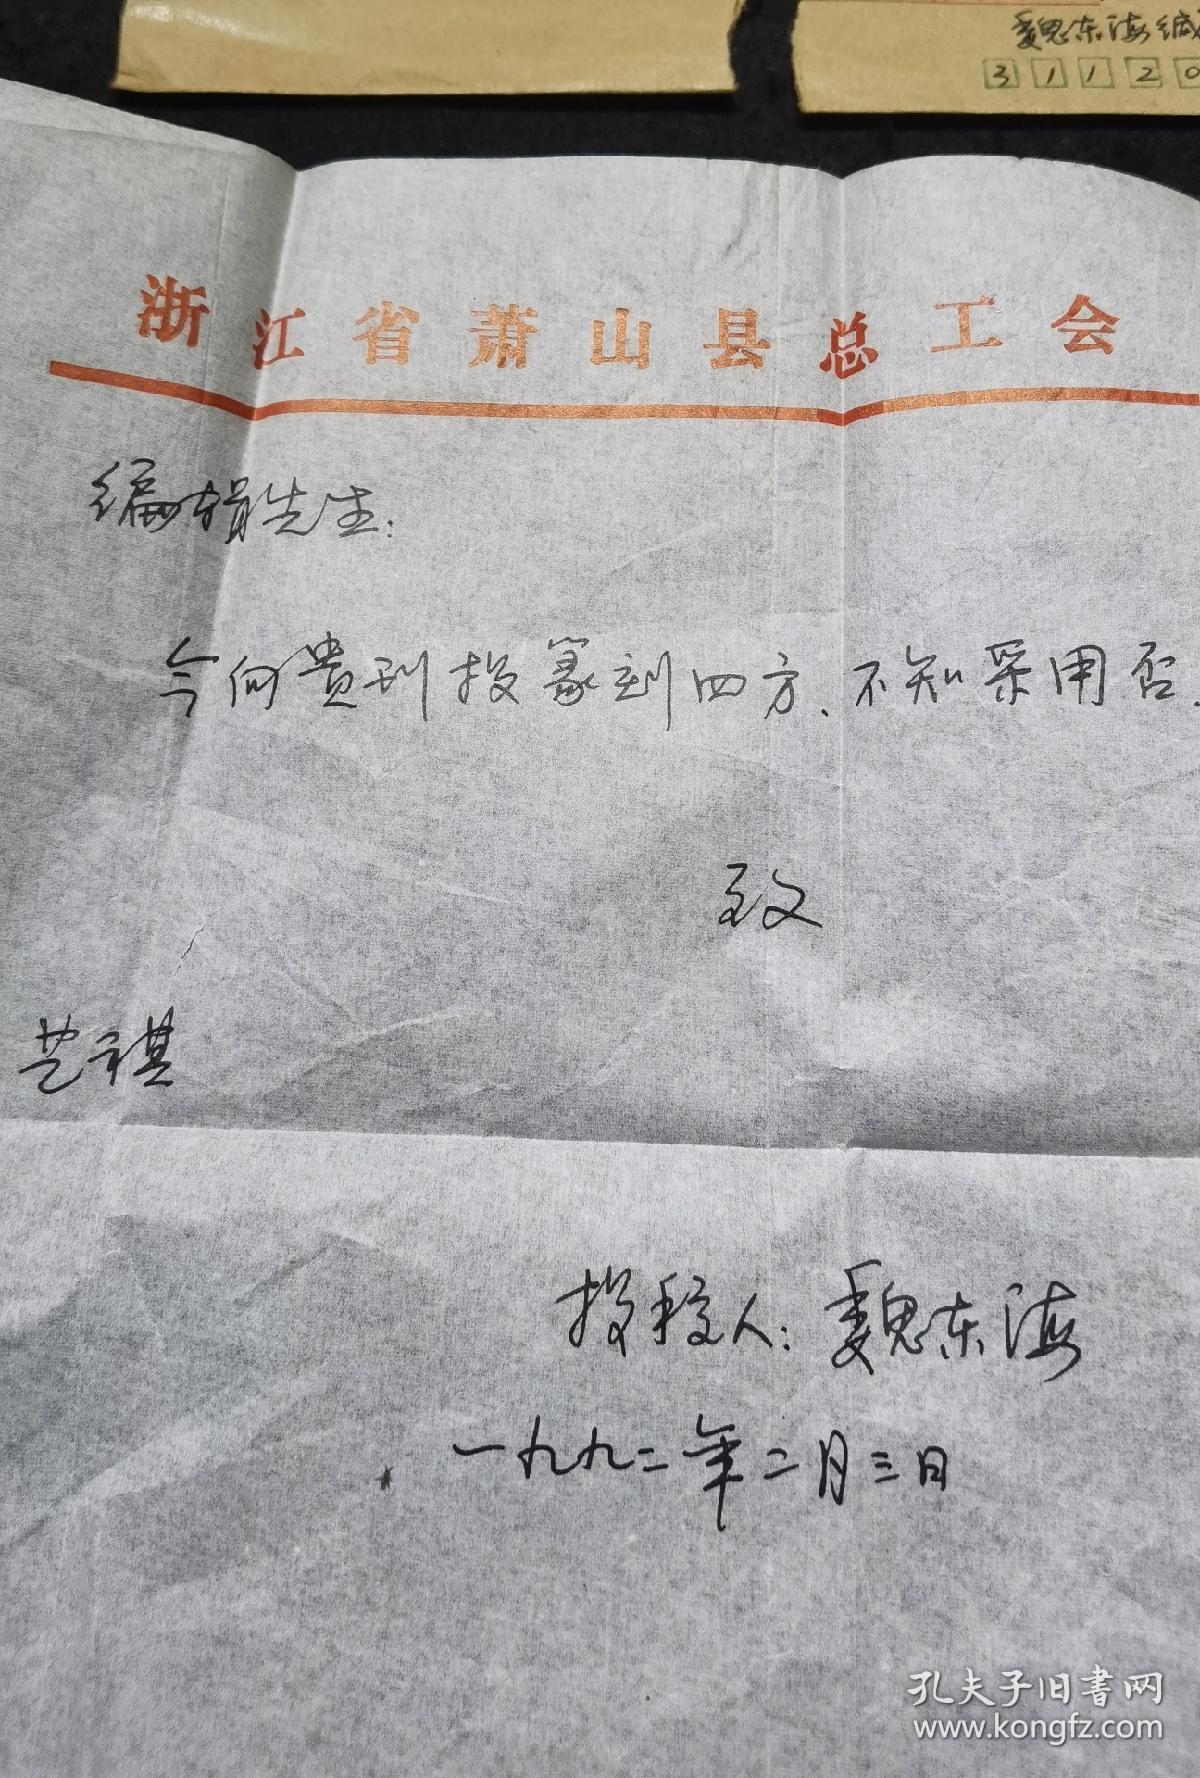 魏东海缄
3 1 1 2 0
浙江省萧山县总工会
编辑先生:
今向贵刊投篆刻四方、不知采用否.
致
艺祺
投稿人:魏东海
一九九二年二月三日
孔夫子旧书网
www.kongfz.com